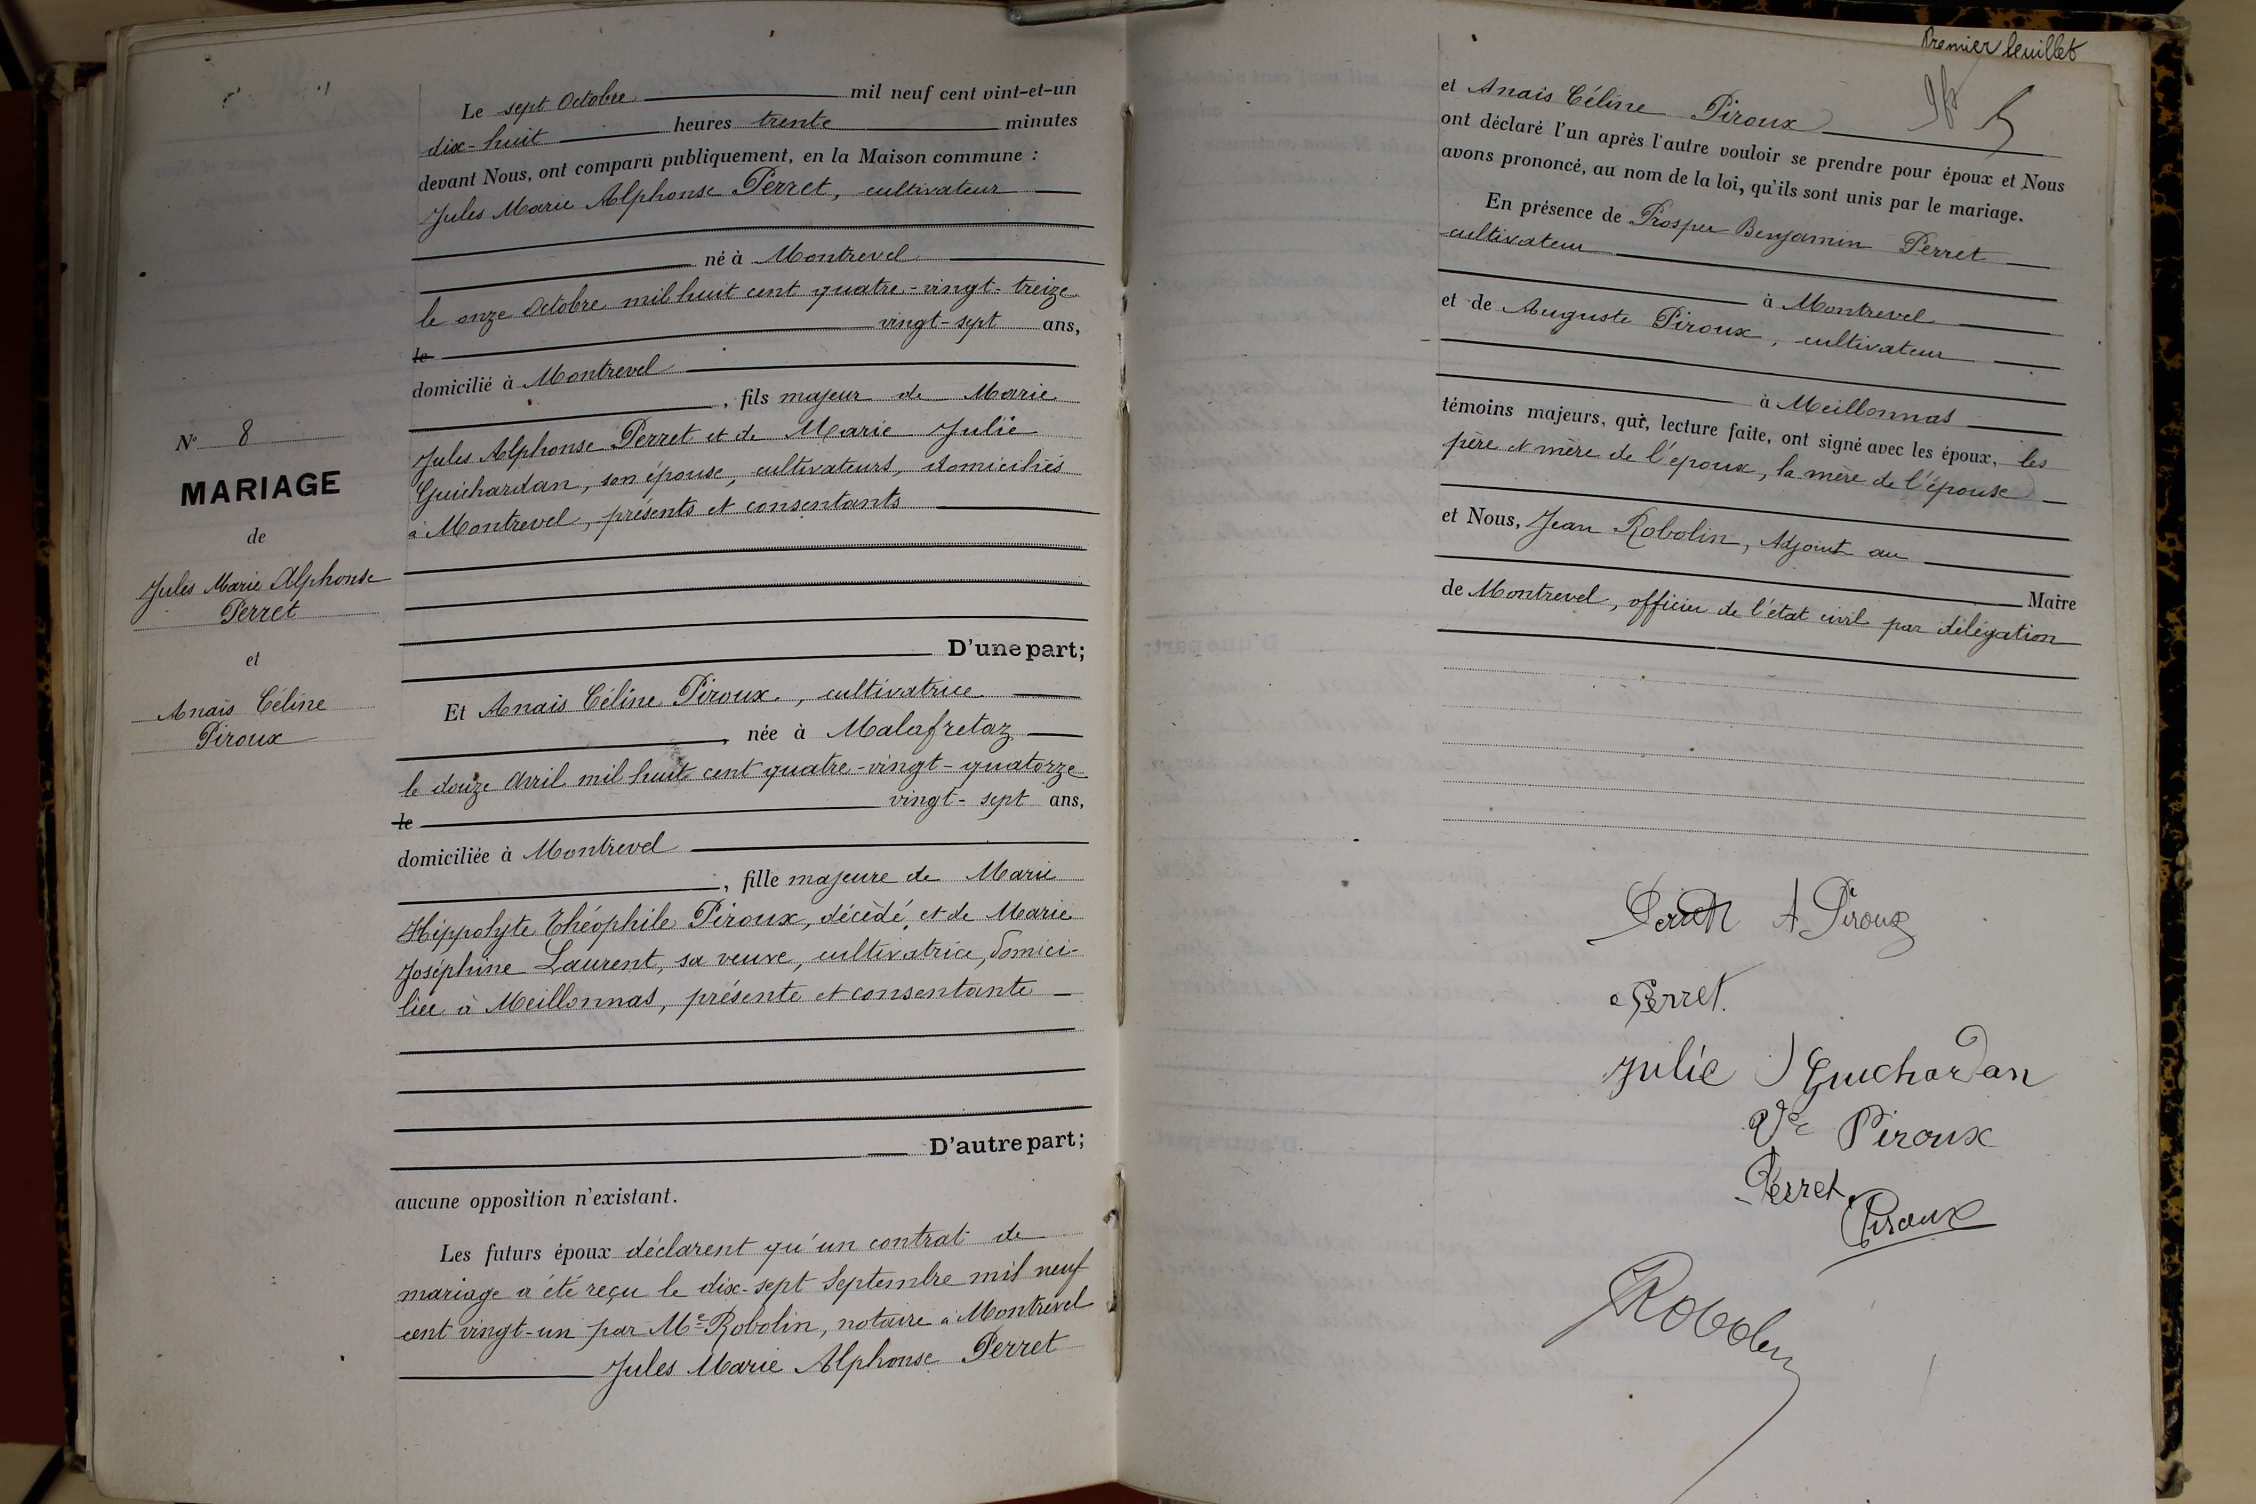 N° 8
MARIAGE
de
Jules Marie Alphonse
Perret
et
Anais Céline
Piroux
Le sept Octobre mil neuf cent vint-et-un
dix-huit heures trente minutes
devant Nous, ont comparu publiquement, en la Maison commune :
Jules Marie Alphonse Perret, cultivateur
né à Montrevel
le onze Octobre mil huit cent quatre-vingt-treize
le vingt-sept ans,
domicilié à Montrevel
, fils majeur de Marie
Jules Alphonse Perret et de Marie Julie
Guichardan, son épouse, cultivateurs, domiciliés
à Montrevel, présents et consentants
D'une part;
Et Anais Céline Piroux, cultivatrice
, née à Malafretaz
le douze Avril mil huit cent quatre-vingt-quatorze
le vingt-sept ans,
domiciliée à Montrevel
, fille majeure de Marie
Hippolyte Théophile Piroux, décédé, et de Marie
Joséphine Laurent, sa veuve, cultivatrice, domici-
liée à Meillonnas, présente et consentante
D'autre part;
aucune opposition n'existant.
Les futurs époux déclarent qu'un contrat de
mariage a été reçu le dix-sept Septembre mil neuf
cent vingt-un par Me Robolin, notaire à Montrevel
Jules Marie Alphonse Perret
Premier feuillet
5
et Anais Céline Piroux
ont déclaré l'un après l'autre vouloir se prendre pour époux et Nous
avons prononcé, au nom de la loi, qu'ils sont unis par le mariage.
En présence de Prosper Benjamin Perret
cultivateur
à Montrevel
et de Auguste Piroux, cultivateur
à Meillonnas
témoins majeurs, qui, lecture faite, ont signé avec les époux, les
père et mère de l'époux, la mère de l'épouse
et Nous, Jean Robolin, Adjoint au
Maire
de Montrevel, officier de l'état civil par délégation
Perret A Piroux
Perret.
Julie Guichardan
Vve Piroux
Perret
Piroux
Robolin